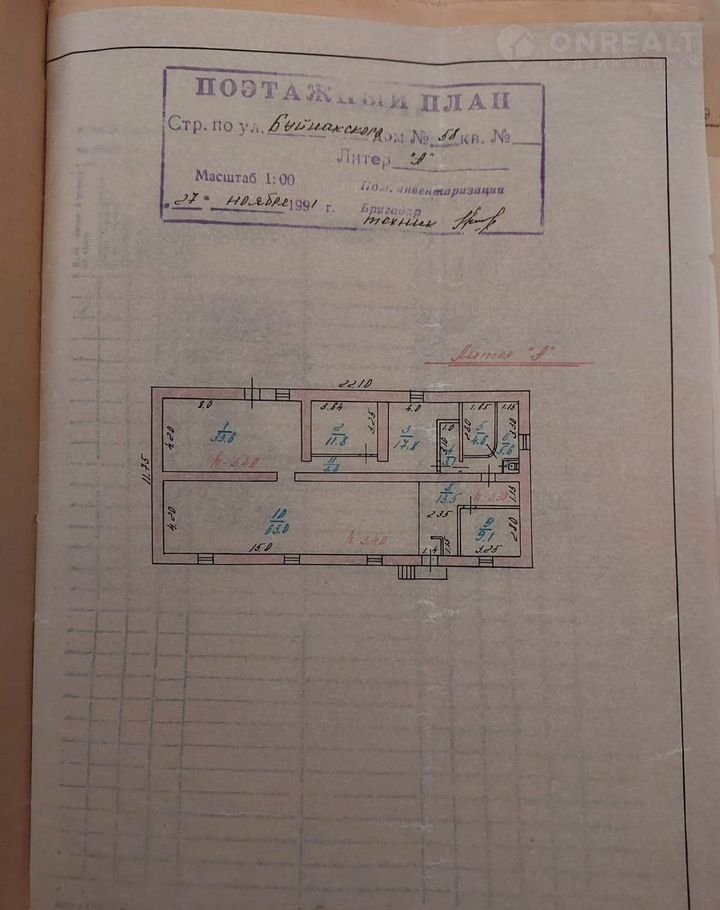 ONREALT
НЕДВИЖИМОСТЬ
ПОЭТАЖНЫЙ ПЛАН
Стр. по ул. Буйнакского дом № 58 кв. №
Литер "А"
Масштаб 1:00
Пом. инвентаризации
"27" ноября 1991 г.
Бригадир
техник
Литер "А"
22.10
8.0 3.64 4.0 1.65 1.15
11.35
4.20
1
33.6
2
11.8
3.25
3
17.8
1.0
3.10
4
2.80
5
4.6
6
3.6
3.30
h-3.40
11
4.20
10
63.0
h-3.40
8
13.5
h-2.50
1.15
2.35
9
9.1
2.80
15.0
1.4
1.15
3.25